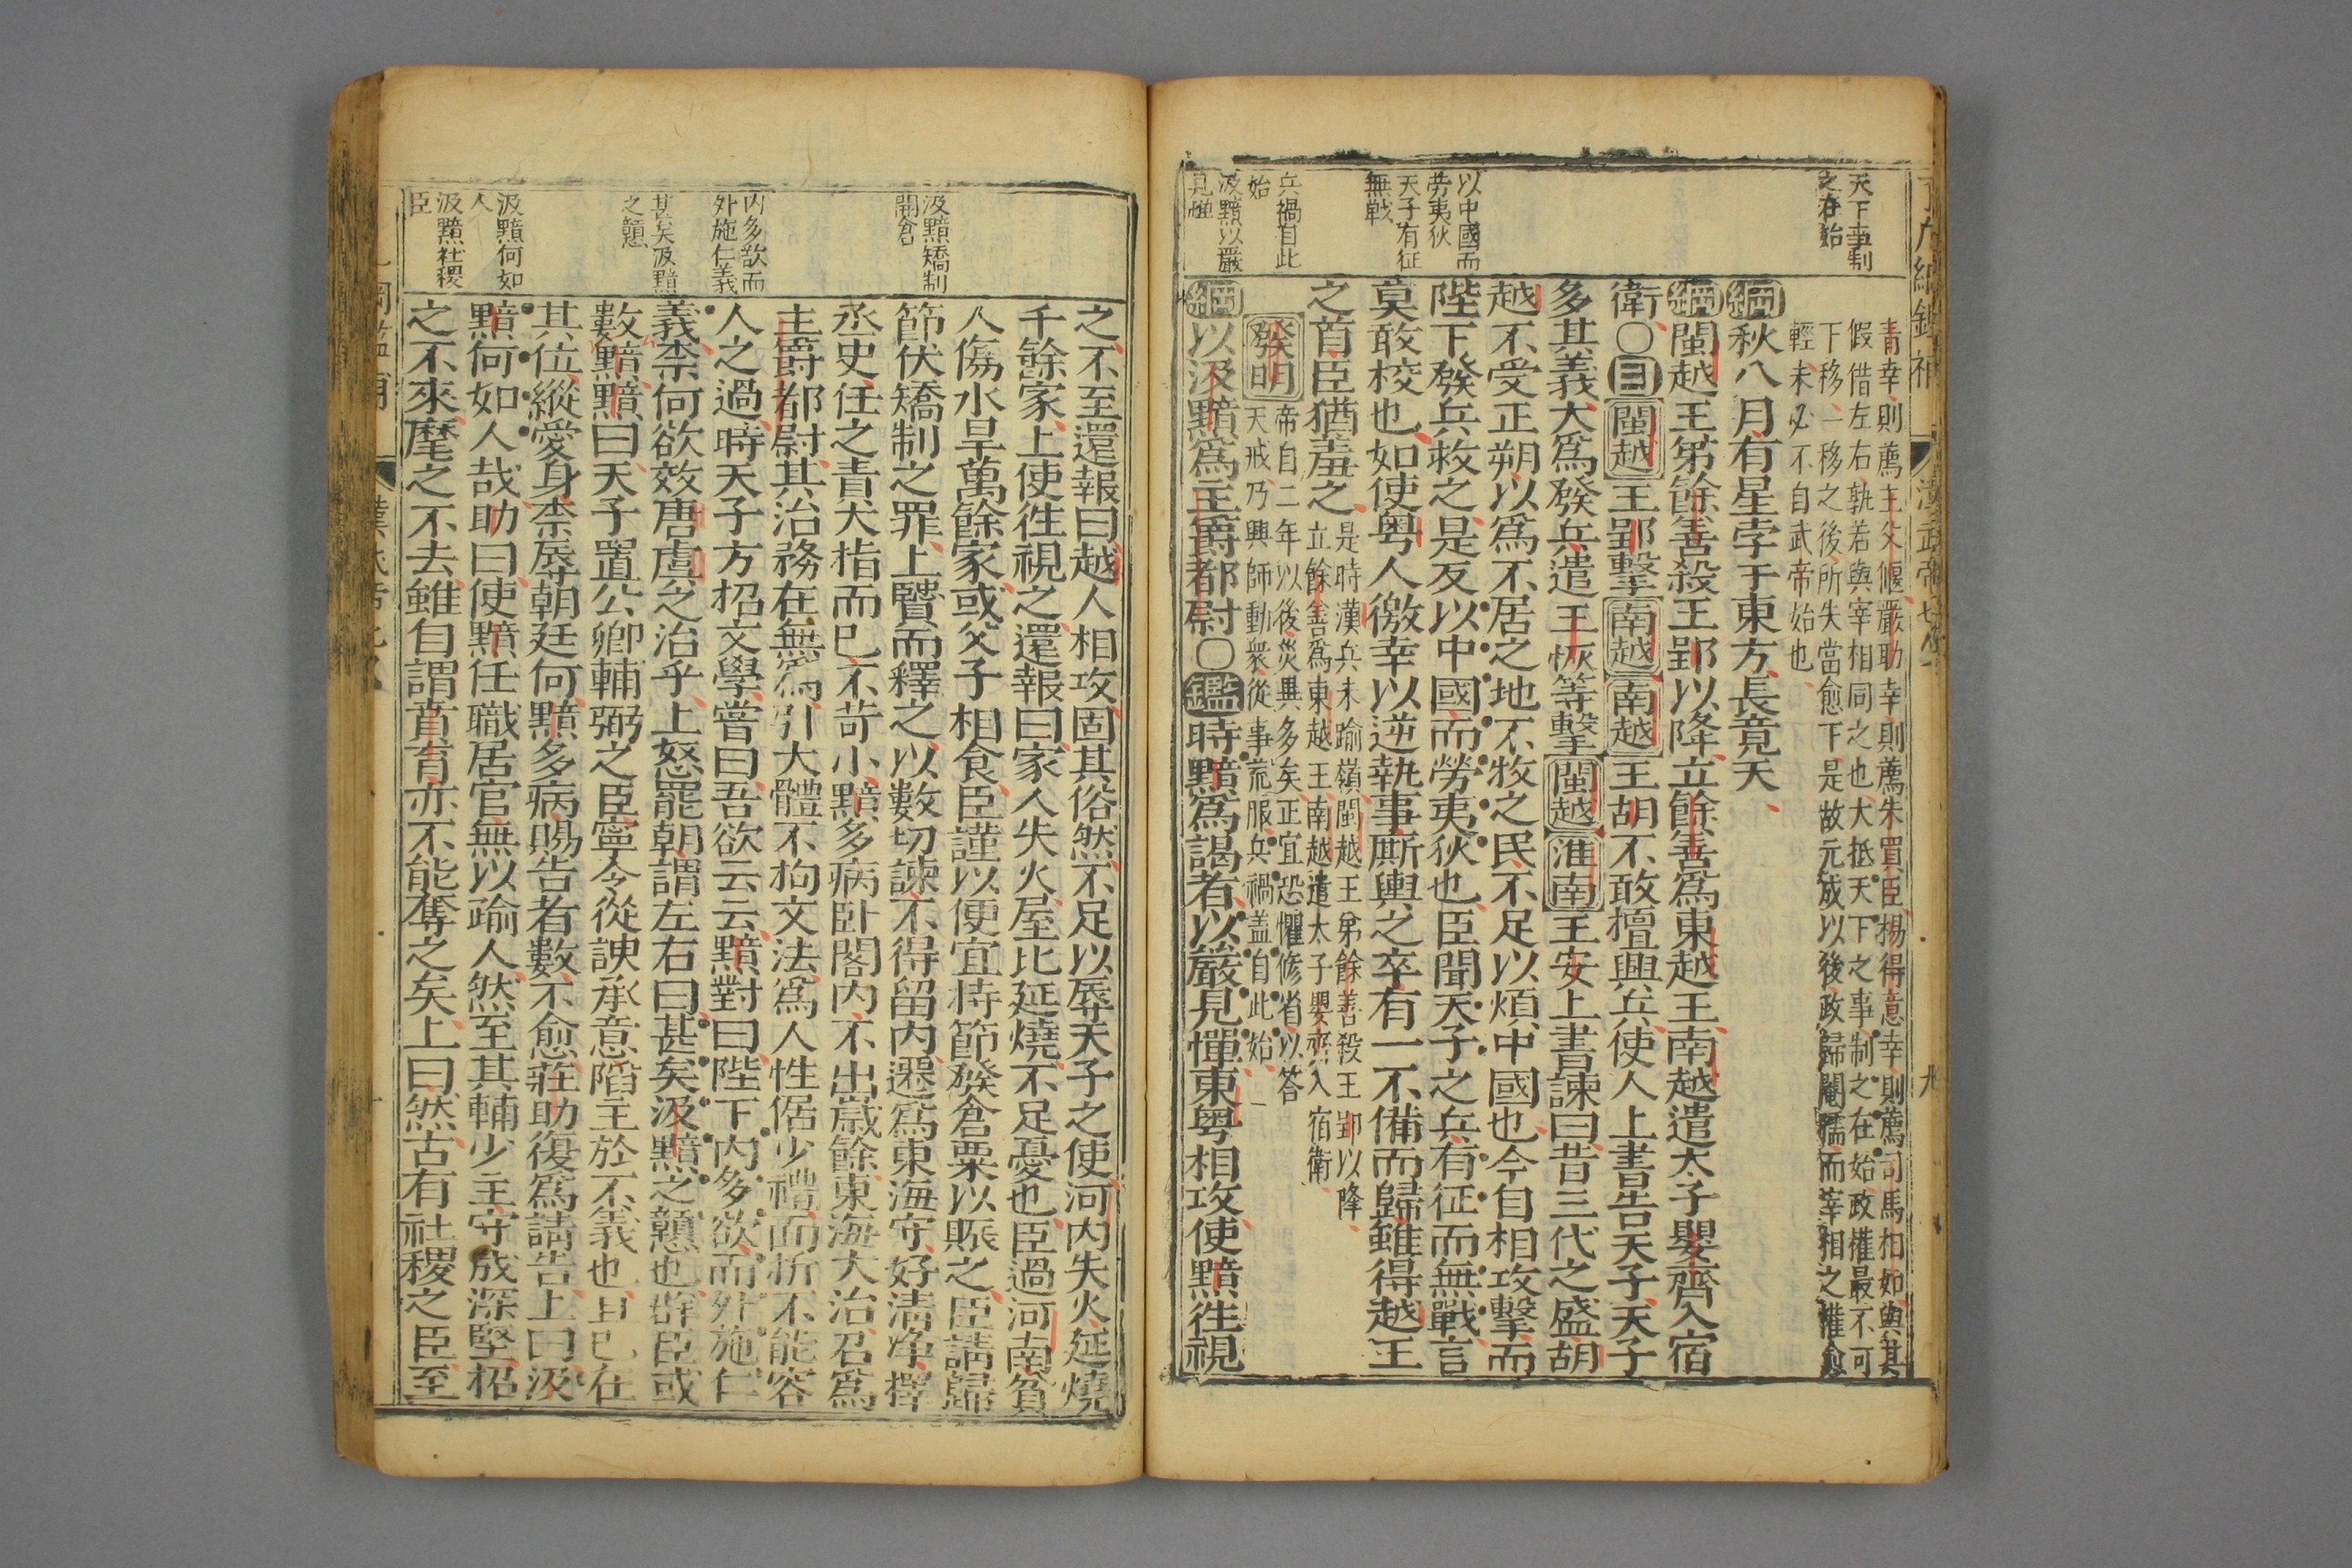 天下事制
之在始
以中國而
勞夷狄
天子有征
無戰
兵禍自此
始
汲黯以嚴
見憚
青幸則薦主父偃嚴助幸則薦朱買臣楊得意幸則薦司馬相如與其
假借左右孰若與宰相同之也大抵天下之事制之在始政權最不可
下移一移之後所失當愈下是故元成以後政歸閹孺而宰相之權愈
輕未必不自武帝始也
綱秋八月有星孛于東方長竟天
綱閩越王弟餘善殺王郢以降立餘善為東越王南越遣太子嬰齊入宿
衛〇目閩越王郢擊南越南越王胡不敢擅興兵使人上書告天子天子
多其義大為發兵遣王恢等擊閩越淮南王安上書諫曰昔三代之盛胡
越不受正朔以為不居之地不牧之民不足以煩中國也今自相攻擊而
陛下發兵救之是反以中國而勞夷狄也臣聞天子之兵有征而無戰言
莫敢校也如使粵人徼幸以逆執事厮輿之卒有一不備而歸雖得越王
之首臣猶羞之
是時漢兵未踰嶺閩越王弟餘善殺王郢以降
立餘善為東越王南越遣太子嬰齊入宿衛
發明
帝自二年以後災異多矣正宜恐懼修省以答
天戒乃興師動衆從事荒服兵禍蓋自此始
綱以汲黯為主爵都尉〇鑑時黯為謁者以嚴見憚東粵相攻使黯往視
漢武帝
九
汲黯矯制
開倉
內多欲而
外施仁義
甚矣汲黯
之戇
汲黯何如
人
汲黯社稷
臣
之不至還報曰越人相攻固其俗然不足以辱天子之使河內失火延燒
千餘家上使徃視之還報曰家人失火屋比延燒不足憂也臣過河南貧
人傷水旱萬餘家或父子相食臣謹以便宜持節發倉粟以賑之臣請歸
節伏矯制之罪上賢而釋之以數切諫不得留內遷為東海守好清凈擇
丞史任之責大指而已不苛小黯多病臥閣內不出歲餘東海大治召為
主爵都尉其治務在無為引大體不拘文法為人性倨少禮面折不能容
人之過時天子方招文學嘗曰吾欲云云黯對曰陛下內多欲而外施仁
義柰何欲效唐虞之治乎上怒罷朝謂左右曰甚矣汲黯之戇也群臣或
數黯黯曰天子置公卿輔弼之臣寧令從諛承意陷主於不義也且已在
其位縱愛身柰辱朝廷何黯多病賜告者數不愈莊助復為請告上曰汲
黯何如人哉助曰使黯任職居官無以踰人然至其輔少主守成深堅招
之不來麾之不去雖自謂賁育亦不能奪之矣上曰然古有社稷之臣至